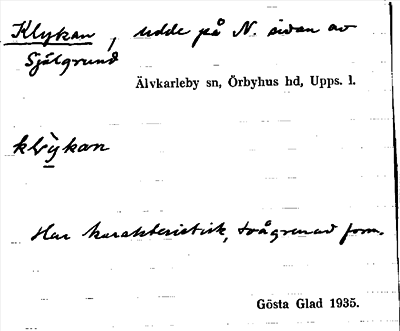 Klykan, udde på N. sidan av
Själgrund
Älvkarleby sn, Örbyhus hd, Upps. l.
klỳkan
Har karakteristisk, tvågrenad form.
Gösta Glad 1935.